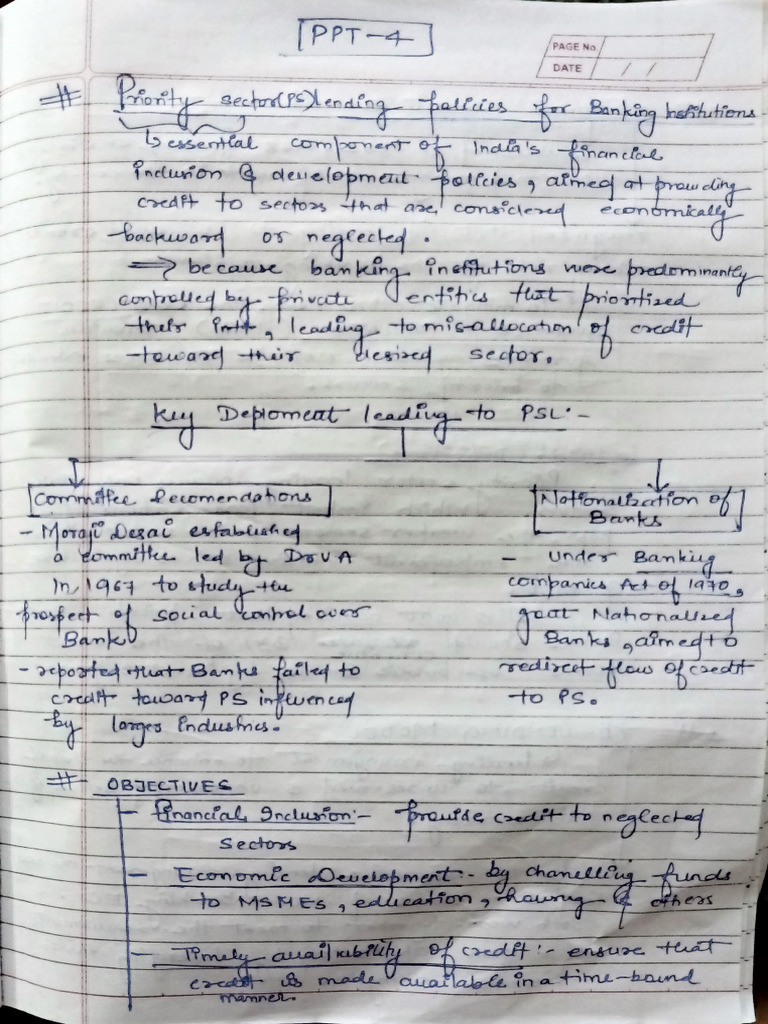 PPT-4
PAGE No.
DATE / /
# Priority sector(PS) lending policies for Banking Institutions
↳ essential component of India's financial
inclusion & development policies, aimed at providing
credit to sectors that are considered economically
backward or neglected.
⇒ because banking institutions were predominantly
controlled by private entities that prioritized
their intt, leading to misallocation of credit
toward their desired sector.
Key Deploment leading to PSL:-
Committee Recomendations
- Moraji Desai established
a committee led by Dr V A
In 1967 to study the
prospect of social control over
Bank
- reported that Banks failed to
credit toward PS influenced
by larger industries.
Nationalization of
Banks
- under Banking
companies Act of 1970,
govt Nationalised
Banks, aimed to
redirect flow of credit
to PS.
# OBJECTIVES
- Financial Inclusion:- provide credit to neglected
sectors
- Economic Development:- by chanelling funds
to MSMEs, education, housing & others
- Timely availability of credit:- ensure that
credit is made available in a time-bound
manner.